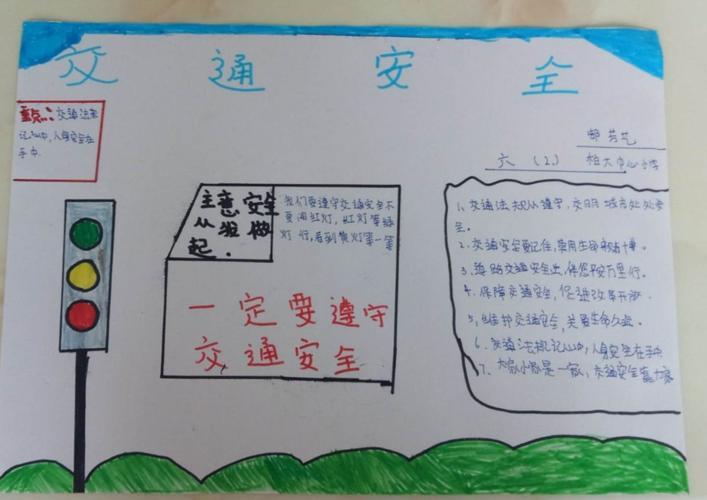 交通安全
重点：交通法规
记心中，人身安全在
手中.
六（2）
柏大中心小学
主意安全
从我做
起.
我们要遵守交通安全不
要闯红灯，红灯停绿
灯行，看到黄灯等一等
一定要遵守
交通安全
1、交通法规从遵守，交日月城市处处
全。
2、交通安全要记住，莫用生命赌十事。
3、交通安全
4、保障交通安全，促进改革开放
5、维护交通安全，关爱生命
6、交通法规记心中，人身安全在手中
7、大家小家是一家，交通安全靠大家